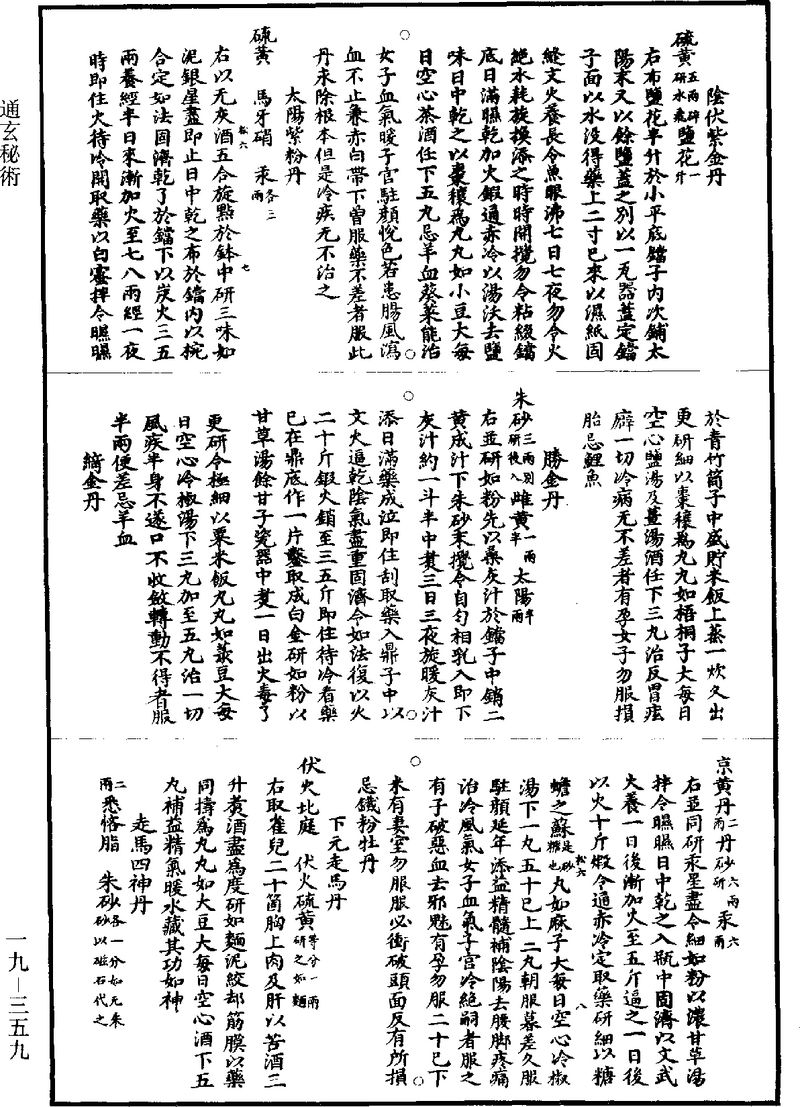 通玄秘術
陰伏紫金丹
硫黃五兩碎研水飛 鹽花一升
右布鹽花半升於小平底鐺子內次鋪太
陽末又以餘鹽蓋之別以一瓦器蓋定鐺
子面以水沒得藥上二寸已來以濕紙固
縫文火養長令魚眼沸七日七夜勿令火
絕水耗旋換添之時時開攪勿令粘綴鐺
底日滿曬乾加火鍜通赤冷以湯沃去鹽
味日中乾之以棗穰為丸丸如小豆大每
日空心茶酒任下五丸忌羊血葵菜能治
女子血氣暖子宮駐顏悅色若患腸風瀉
血不止兼赤白帶下曾服藥不差者服此
丹永除根本但是冷疾无不治之
太陽紫粉丹
硫黃 馬牙硝 汞各三兩
右以无灰酒五合旋點於鉢中研三味如
泥銀星盡即止日中乾之布於鐺內以椀
合定如法固濟乾了於鐺下以炭火三五
兩養經半日來漸加火至七八兩經一夜
時即住火待冷開取藥以白蜜拌令曬曬
於青竹筒子中盛貯米飯上蒸一炊久出
更研細以棗穰為丸丸如梧桐子大每日
空心鹽湯及薑湯酒任下三丸治反胃痃
癖一切冷病无不差者有孕女子勿服損
胎忌鯉魚
勝金丹
朱砂三兩別研後入 雌黃一兩半 太陽半兩
右並研如粉先以桑灰汁於鐺子中銷二
黃成汁下朱砂末攪令自勻相乳入即下
灰汁約一斗半中煑三日三夜旋暖灰汁
添日滿藥成泣即住刮取藥入鼎子中以
文火逼乾陰氣盡重固濟令如法復以火
二十斤鍜火銷至三五斤即住待冷看藥
已在鼎底作一片鑿取成白金研如粉以
甘草湯餘甘子瓷器中煑一日出火毒了
更研令極細以粟米飯丸丸如菉豆大每
日空心冷椒湯下三丸加至五丸治一切
風疾半身不遂口不收斂轉動不得者服
半兩便差忌羊血
縞金丹
京黃丹二兩 丹砂六兩研 汞六兩
右並同研汞星盡令細如粉以濃甘草湯
拌令曬曬日中乾之入瓶中固濟以文武
火養一日後漸加火至五斤逼之一日後
以火十斤煅令通赤冷定取藥研細以糖
蟾之蘇是砂糖也丸如麻子大每日空心冷椒
湯下一丸五十已上二丸朝服暮差久服
駐顏延年添益精髓補陰陽去腰脚疼痛
治冷風氣女子血氣子宮冷絕嗣者服之
有子破惡血去邪魅有孕勿服二十已下
未有妻室勿服服必衝破頭面反有所損
忌鐵粉牡丹
下元走馬丹
伏火北庭 伏火硫黃等分一兩研之如麵
右取雀兒二十箇胸上肉及肝以苦酒三
升煑酒盡為度研如麵泥絞却筋膜以藥
同擣為丸丸如大豆大每日空心酒下五
丸補益精氣暖水藏其功如神
走馬四神丹
二兩悉愘脂 朱砂各一分如无朱砂以磁石代之
松六
七
松六
八
一九-三五九